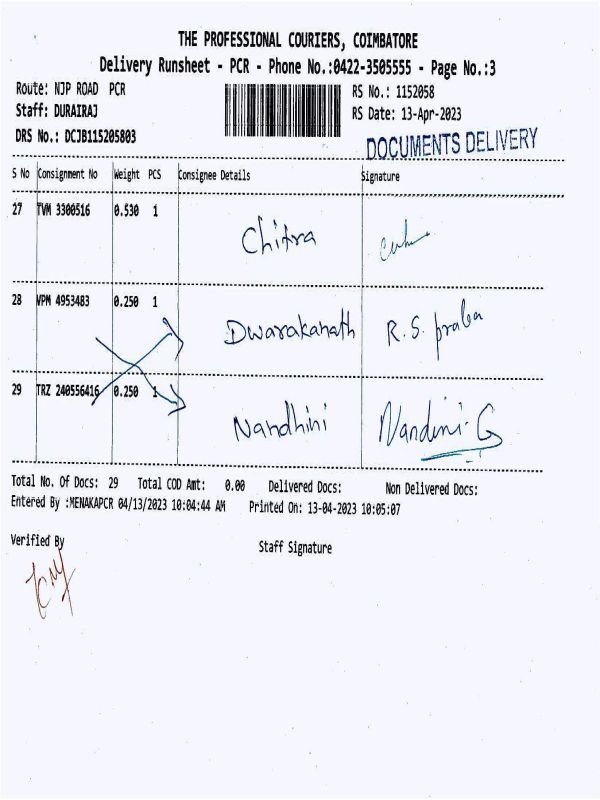 THE PROFESSIONAL COURIERS, COIMBATORE
Delivery Runsheet - PCR - Phone No.:0422-3505555 - Page No.:3
Route: NJP ROAD PCR RS No.: 1152058
Staff: DURAIRAJ RS Date: 13-Apr-2023
DRS No.: DCJB115205803 DOCUMENTS DELIVERY
S No Consignment No Weight PCS Consignee Details Signature
27 TVM 3300516 0.530 1 Chitra
28 VPM 4953483 0.250 1 Dwarakanath R.S. praba
29 TRZ 240556416 0.250 1 Nandhini Nandini. G
Total No. Of Docs: 29 Total COD Amt: 0.00 Delivered Docs: Non Delivered Docs:
Entered By :MENAKAPCR 04/13/2023 10:04:44 AM Printed On: 13-04-2023 10:05:07
Verified By Staff Signature